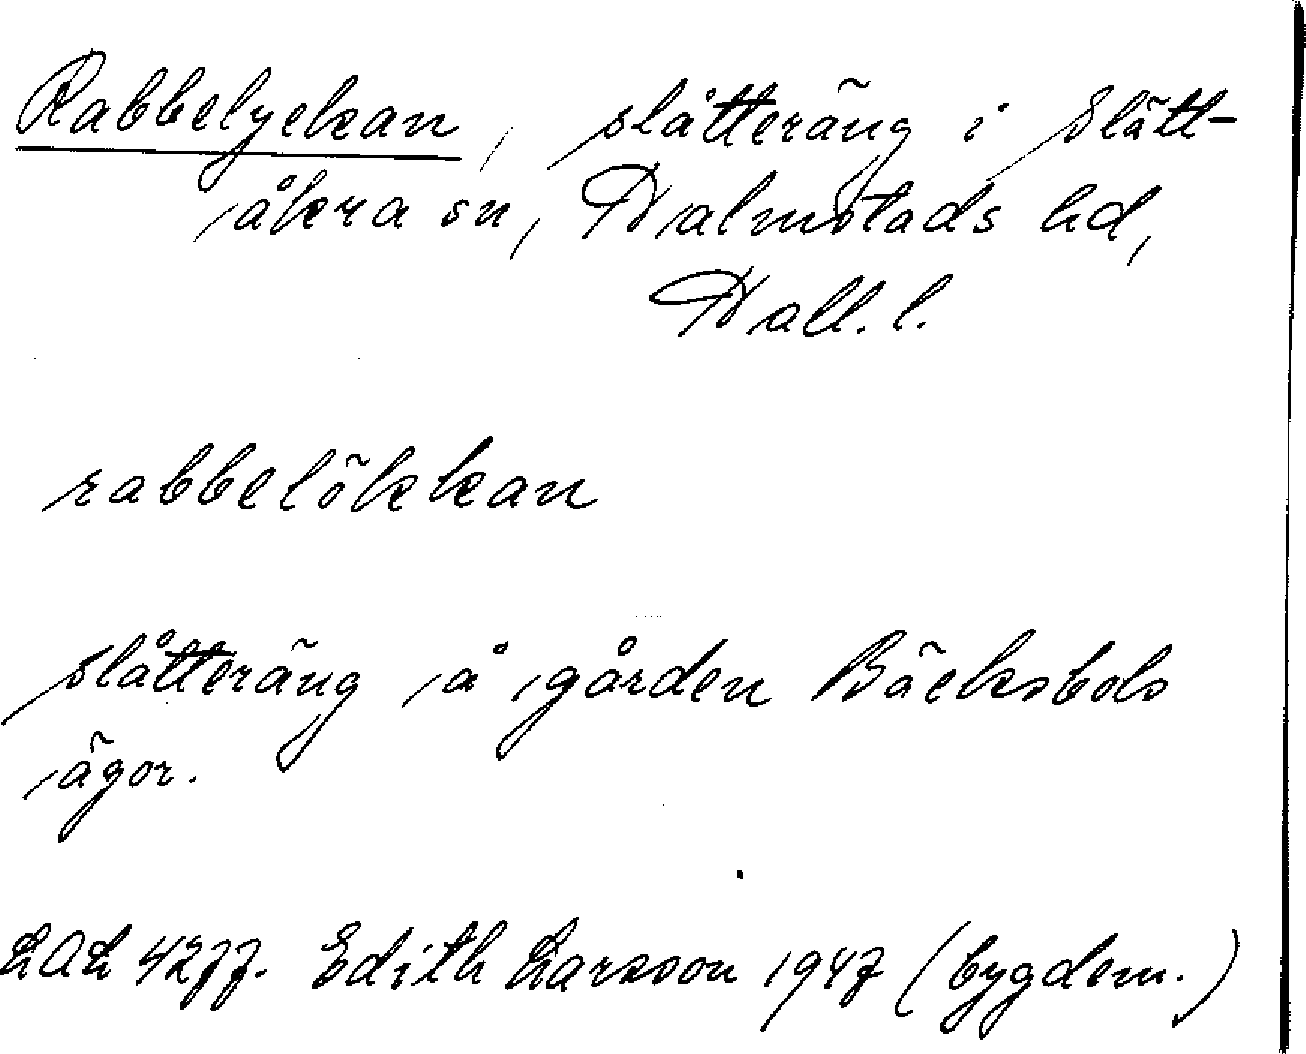 Rabbelyckan, slåtteräng i Slätt-
åkra sn, Halmstads hd,
Hall. l.
rabbelökkan
slåtteräng å gården Bäcksbols
ägor.
LAL 4277. Edith Larsson 1947 (bygdem.)